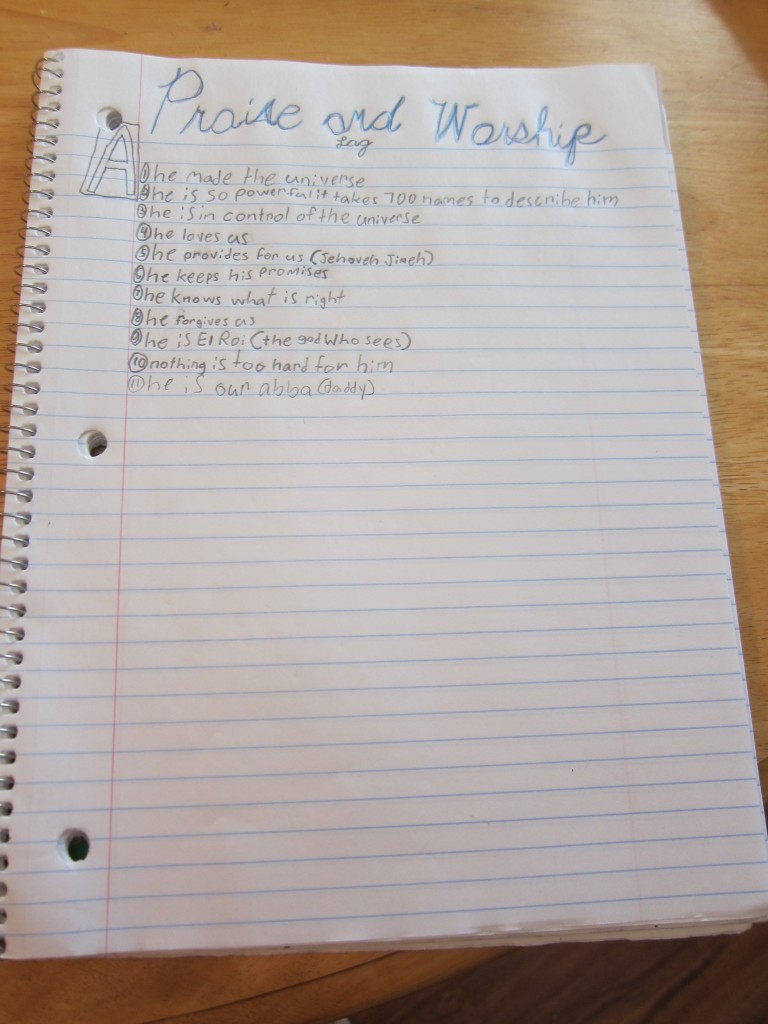 Praise and Worship
Log
A
① he made the universe
② he is so powerful it takes 700 names to describe him
③ he is in control of the universe
④ he loves us
⑤ he provides for us (Jehoveh Jireh)
⑥ he keeps his promises
⑦ he knows what is right
⑧ he forgives us
⑨ he is El Roi (the god who sees)
⑩ nothing is too hard for him
⑪ he is our abba (daddy)